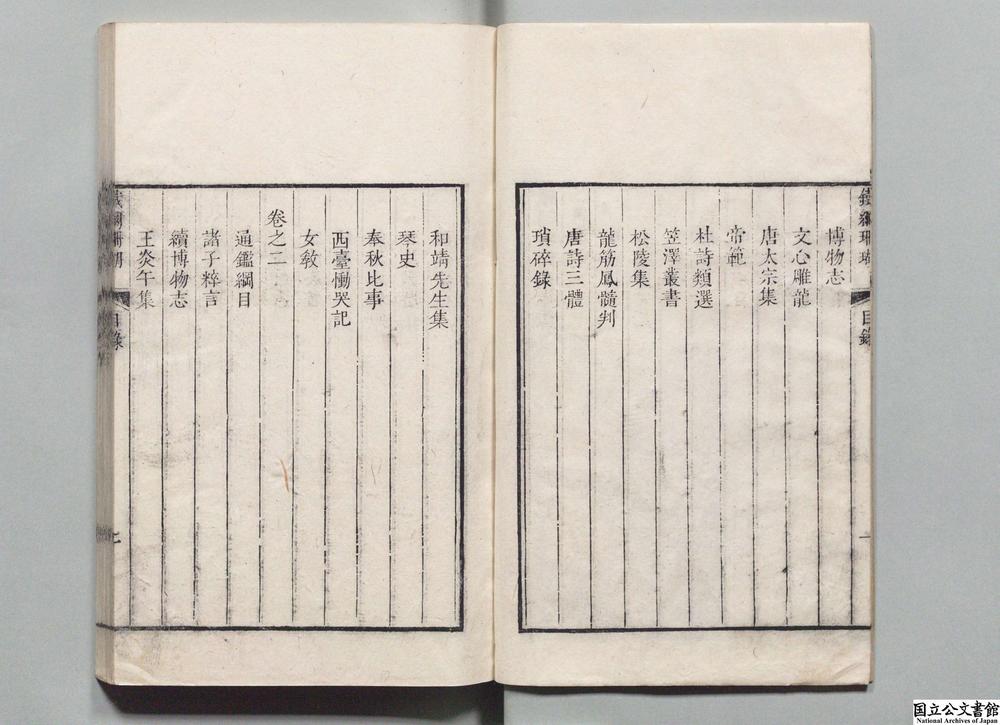 鐵網珊瑚
目錄
一
博物志
文心雕龍
唐太宗集
帝範
杜詩類選
笠澤叢書
松陵集
龍筋鳳髓判
唐詩三體
瑣碎錄
和靖先生集
琴史
奉秋比事
西臺慟哭記
女教
卷之二
通鑑綱目
諸子粹言
續博物志
王炎午集
目錄
国立公文書館
National Archives of Japan